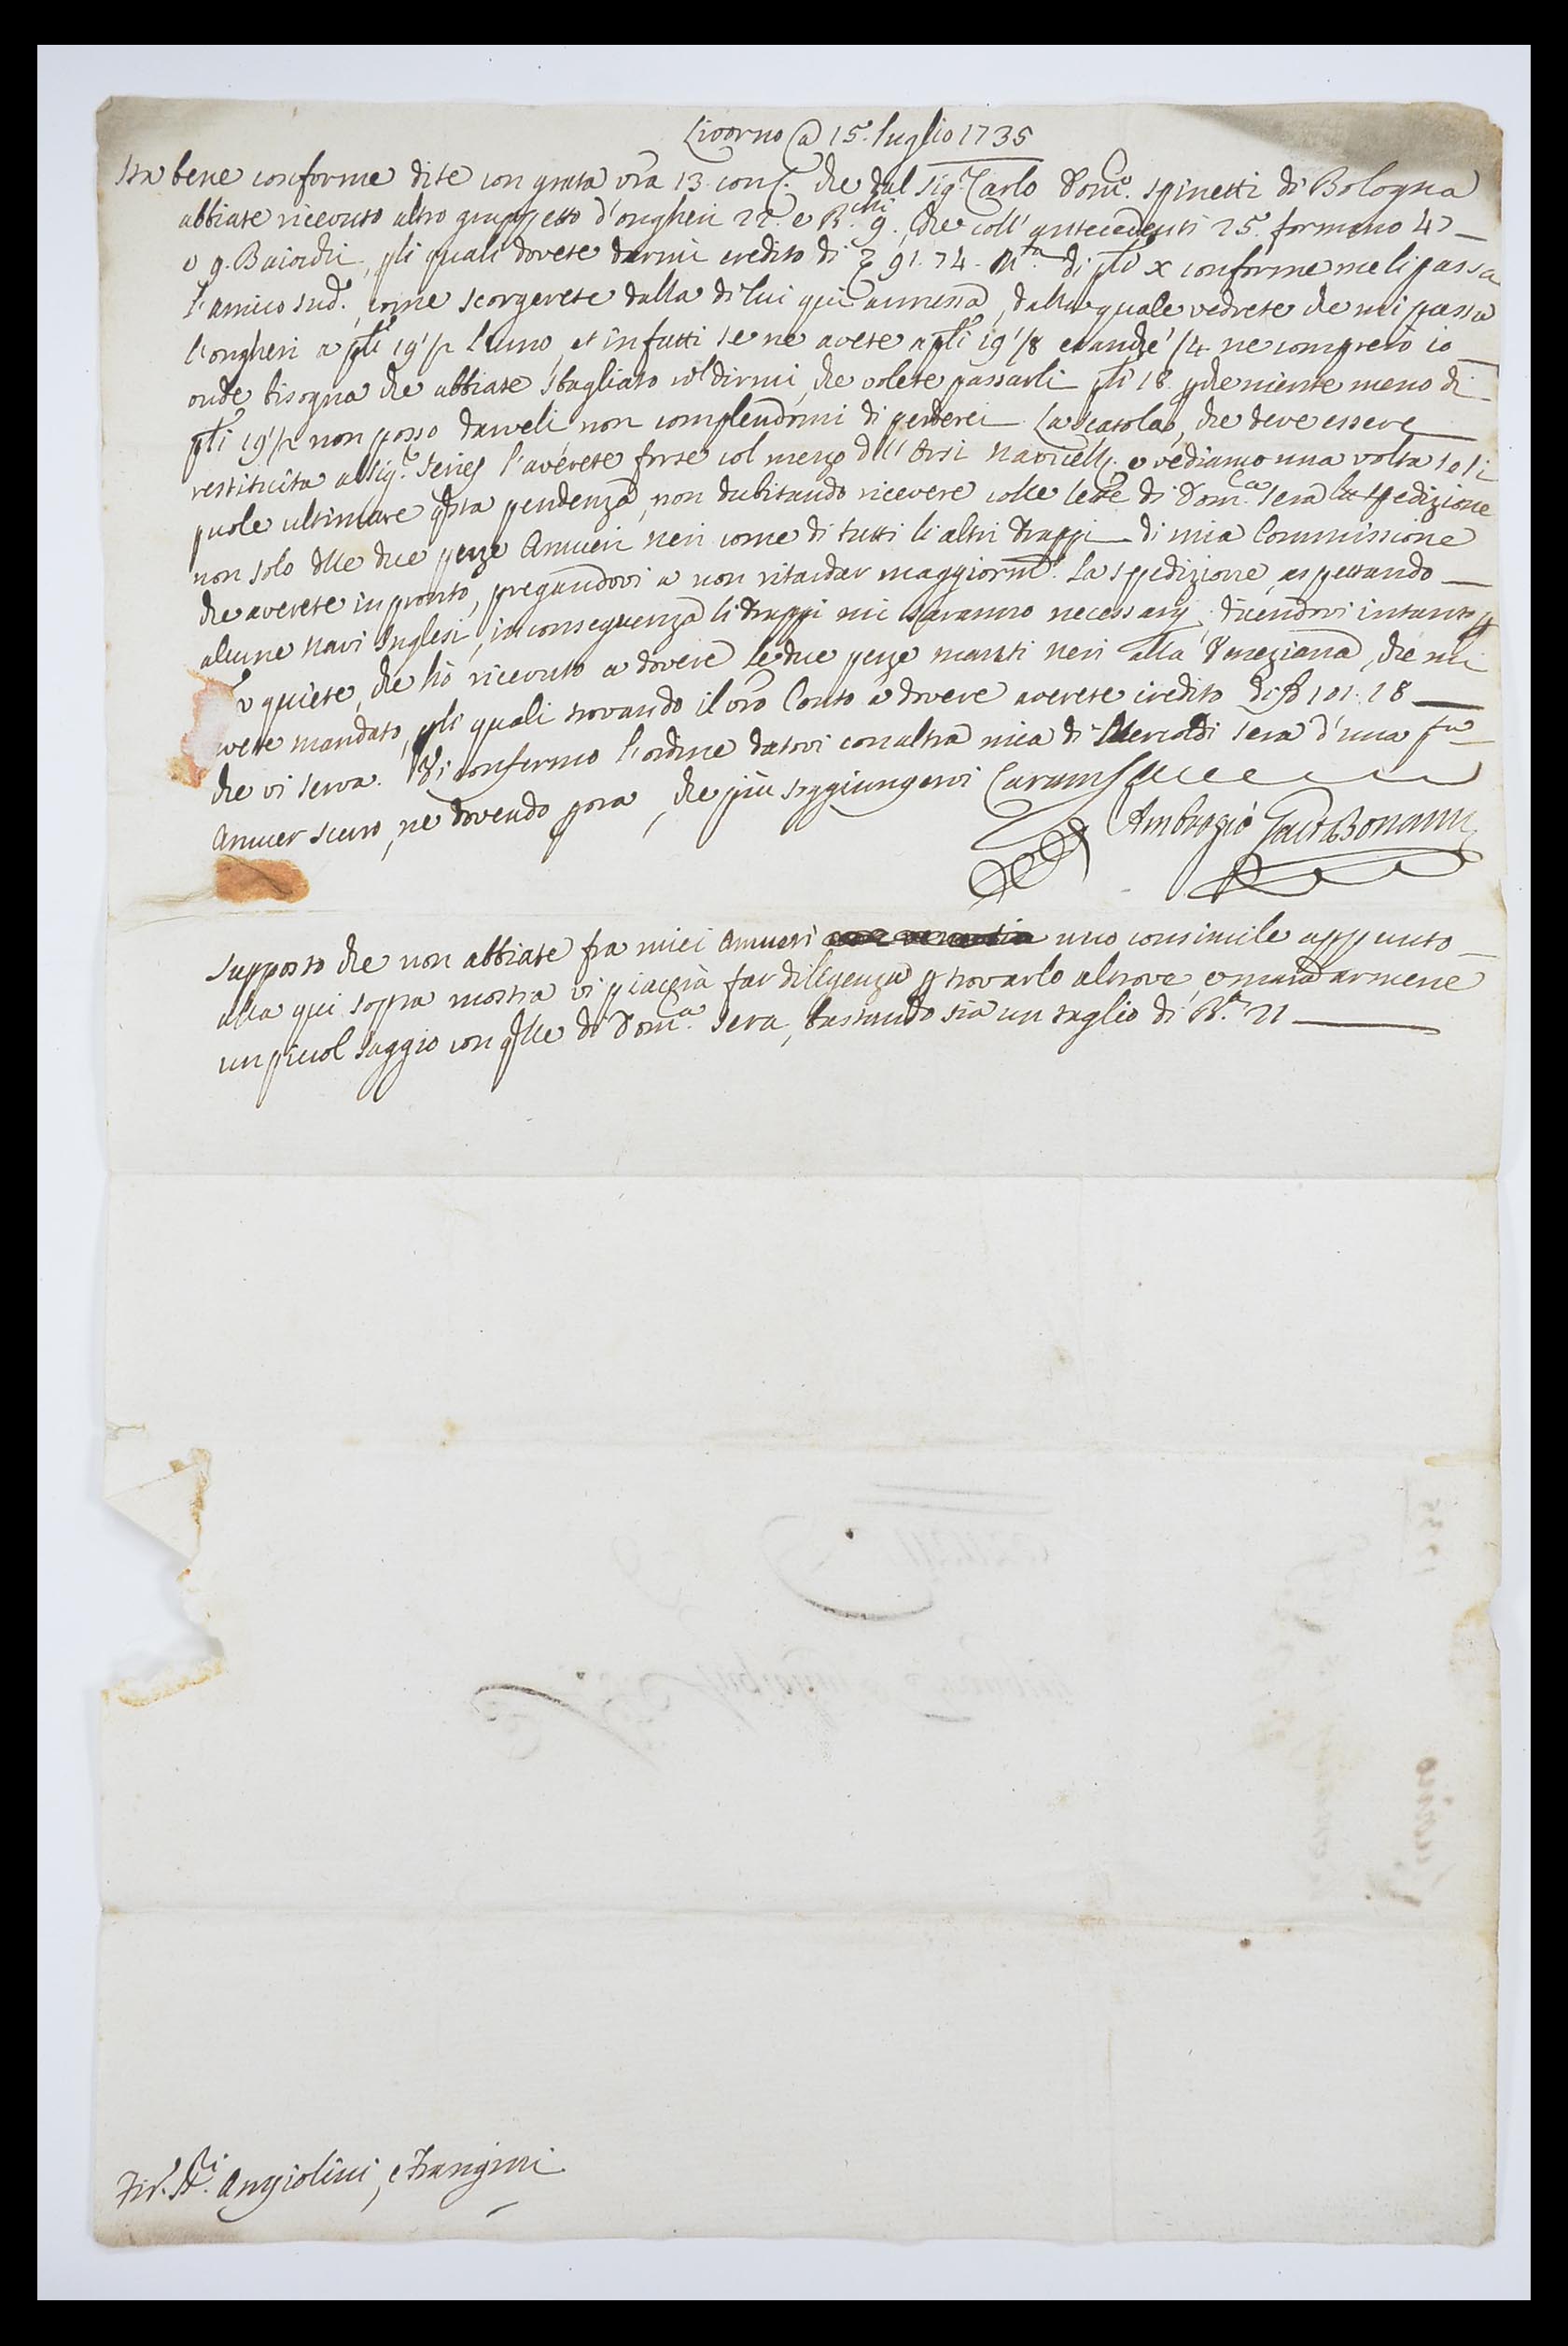 Livorno @ 15. luglio 1735
Sta bene conforme dite con grata vra 13. corr. che dal Sigr. Carlo Domco. Spinetti di Bologna
abbiate ricevuto altro gruppetto d'ongheri 22. e B.chi 9., che coll' antecedenti 25. formano 47
e 9. Baiochi, pli quali dovete darmi credito di 91.74. di pli x conforme me li passa
l'amico sudo. come scorgerete dalla di lui qui annessa, dalla quale vedrete che mi passa
l'ongheri a pli 19 1/2 l'uno, et infatti se ne avete a pli 19 1/8 et anche 1/4 ne comprerò io
onde bisogna che abbiate sbagliato col dirmi, che volete passarli pli 18. p che niente meno di
pli 19 1/2 non posso darveli non complendomi di perderci. La scatola, che deve essere
restituita al Sigr. l'averete forse col mezo dll' Orsi Navicell. e vediamo una volta se si
puole ultimare qsta pendenza, non dubitando ricevere colle lettre di Domca. sera la spedizione
non solo dlle due peze Amueri neri come di tutti li altri drappi di mia Commissione
che averete in pronto, pregandovi a non ritardar maggiorme. la spedizione, aspettando
alcune navi Inglesi, in conseguenza li drappi mi saranno necessarj. dicendovi intanto p
vo quiete, che hò ricevuto a dovere le due peze manti neri alla Veneziana, che mi
avete mandato, pli quali trovando il vro Conto a dovere averete credito di 101.18
che vi serva. Vi confermo l'ordine datovi con altra mia di Mercoldi sera d'una
Amuer scuro, ne dovendo pora, che più soggiungervi
Ambrogio Bonanni
Supposto che non abbiate fra miei Amueri uno consimile appunto
alla qui sopra mostra vi piacerà far diligenza p trovarlo altrove, e mandarmene
un piccol saggio con qlle di Domca. sera, bastando sia un taglio di 21
Angiolini, e Frangini